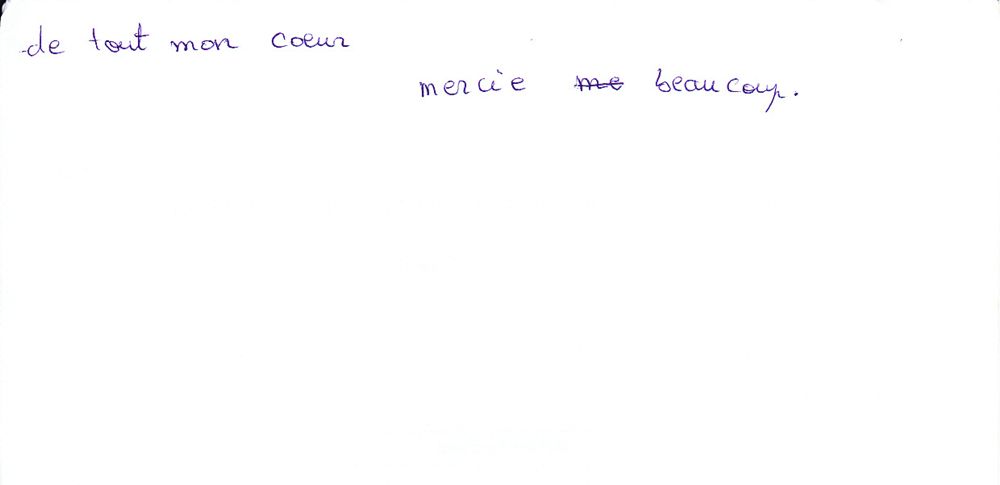 de tout mon coeur
mercie me beaucoup.